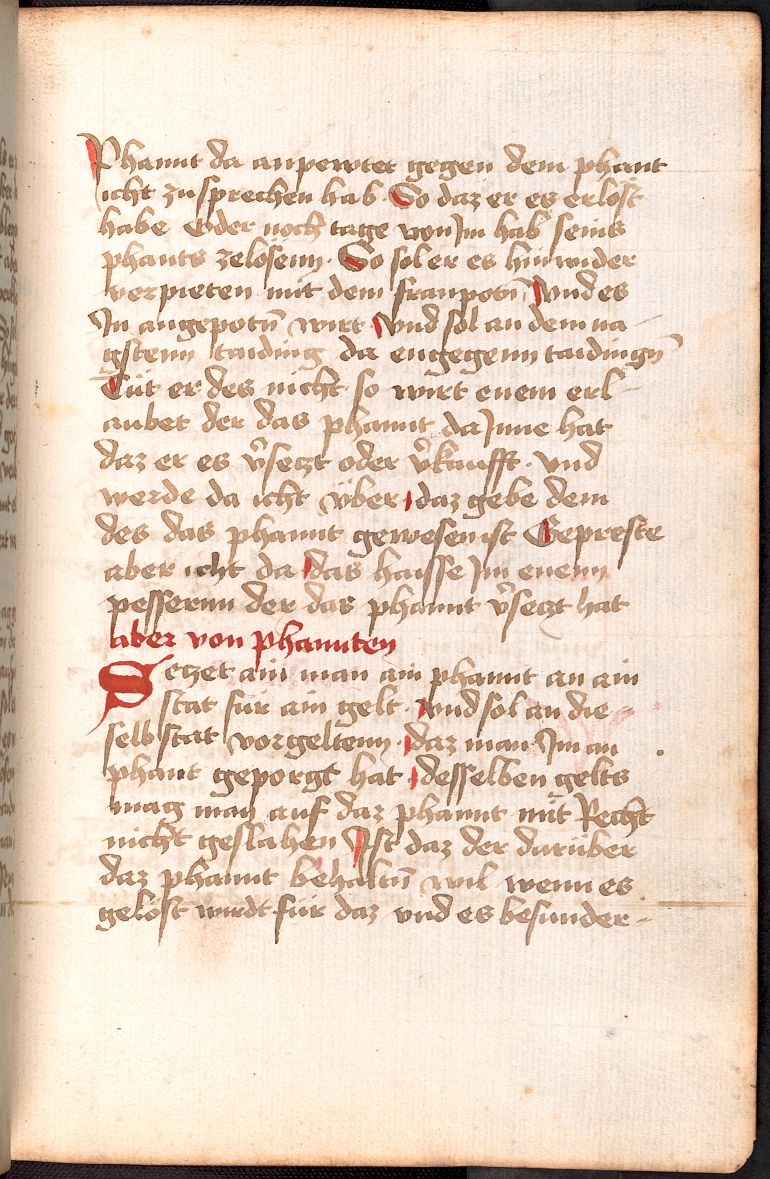 Phannt da anpewtet gegen dem phant
icht zusprechen hab · So daz er es erlost
habe Oder noch tage von Jm hab seins
phants zelösenn · So sol er es hinwider
verpieten mit dem franpotn̄ Vnd es
Jn angepotn̄ wirt · Vnd sol an dem na-
gstenn taiding da engegenn taidingn̄
Tüt er des nicht so wirt enem erl-
aubet der das phannt da Jnne hat
daz er es v̄seczt oder v̄kaufft · Vnd
werde da icht v̈ber daz gebe dem
des das phannt gewesen ist Gepreste
aber icht da das haisse Jm enenn
pessernn der das phannt v̄seczt hat
aber von phannten
Seczet ain man ain phannt an ain
stat für ain gelt · Vnd sol an die-
selb stat vorgeltenn · daz man Jm an
phant geporgt hat · desselben gelts
mag man auf daz phannt mit Recht
nicht geslahen Jst daz der darüber
daz phannt behaltn̄ wil wenn es
gelost wirdt für daz vnd es besunder-